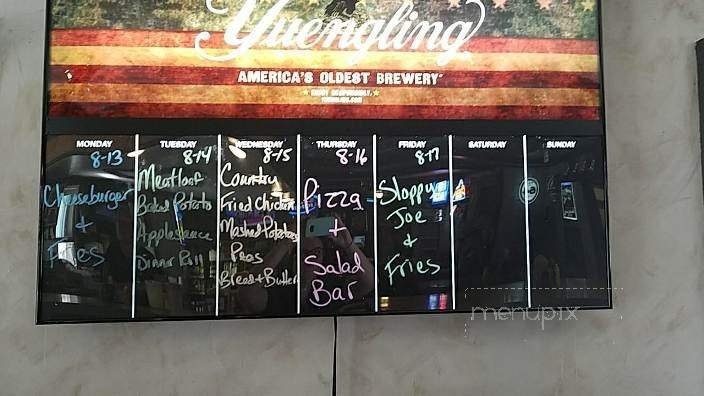 Yuengling
AMERICA'S OLDEST BREWERY
ENJOY RESPONSIBLY.
MONDAY
8-13
Cheeseburger
+
Fries
TUESDAY
8-14
Meatloaf
Baked Potato
Applesauce
Dinner Roll
WEDNESDAY
8-15
Country
Fried Chicken
Mashed Potatoes
Peas
Bread + Butter
THURSDAY
8-16
Pizza
+
Salad
Bar
FRIDAY
8-17
Sloppy
Joe
&
Fries
SATURDAY
SUNDAY
menupix